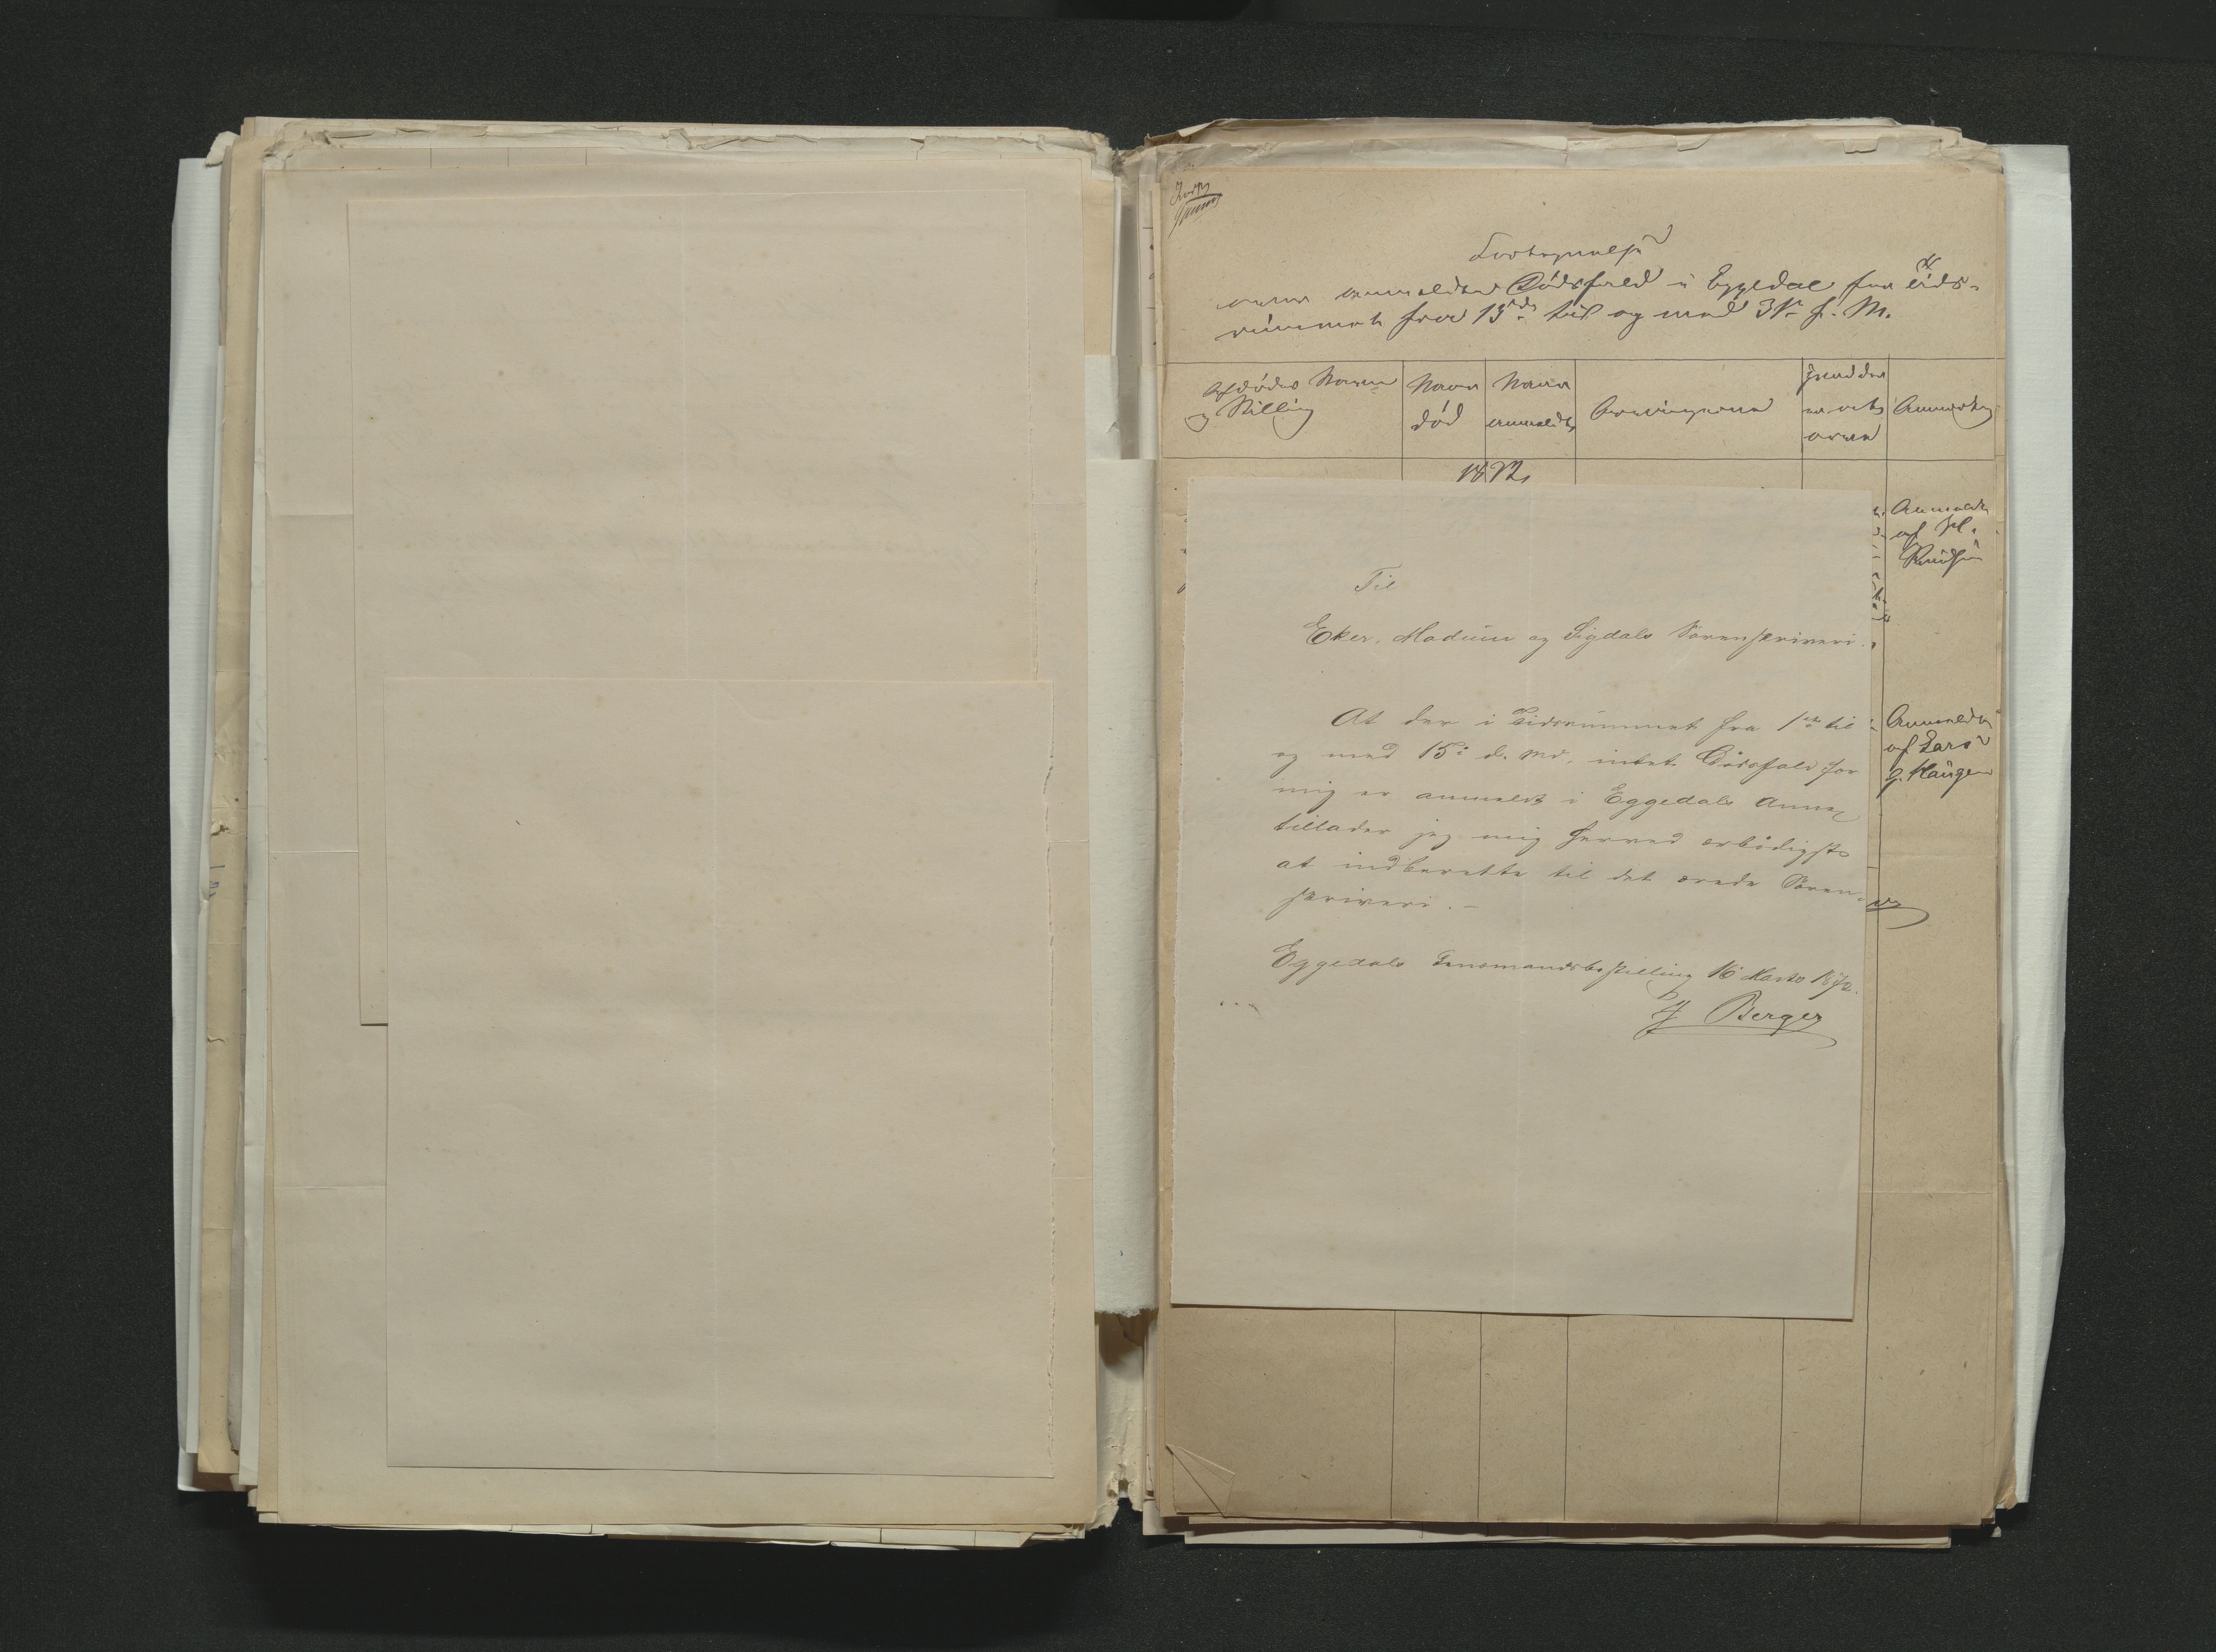 Fortegnelse
over anmeldte Dødsfald i Eggedal for Tids-
rummet fra 15de til og med 31te f. M.
Afdødes Navn
og Stilling
Naar
død
Naar
anmeldt
Arvingerne
Anmærkn
1872
Anmeldt
af H.
Knudsen
Anmeldt
af Lars
Haugen
Til
Eker, Modum og Sigdals Sorenskriveri.
At der i Tidsrummet fra 1ste til
og med 15de d. Md. intet Dødsfald for
mig er anmeldt i Eggedals Annex
tillader jeg mig herved ærbødigst
at indberette til det ærede Soren-
skriveri. -
Eggedals Lensmandsbestilling 16 Marts 1872.
Berger